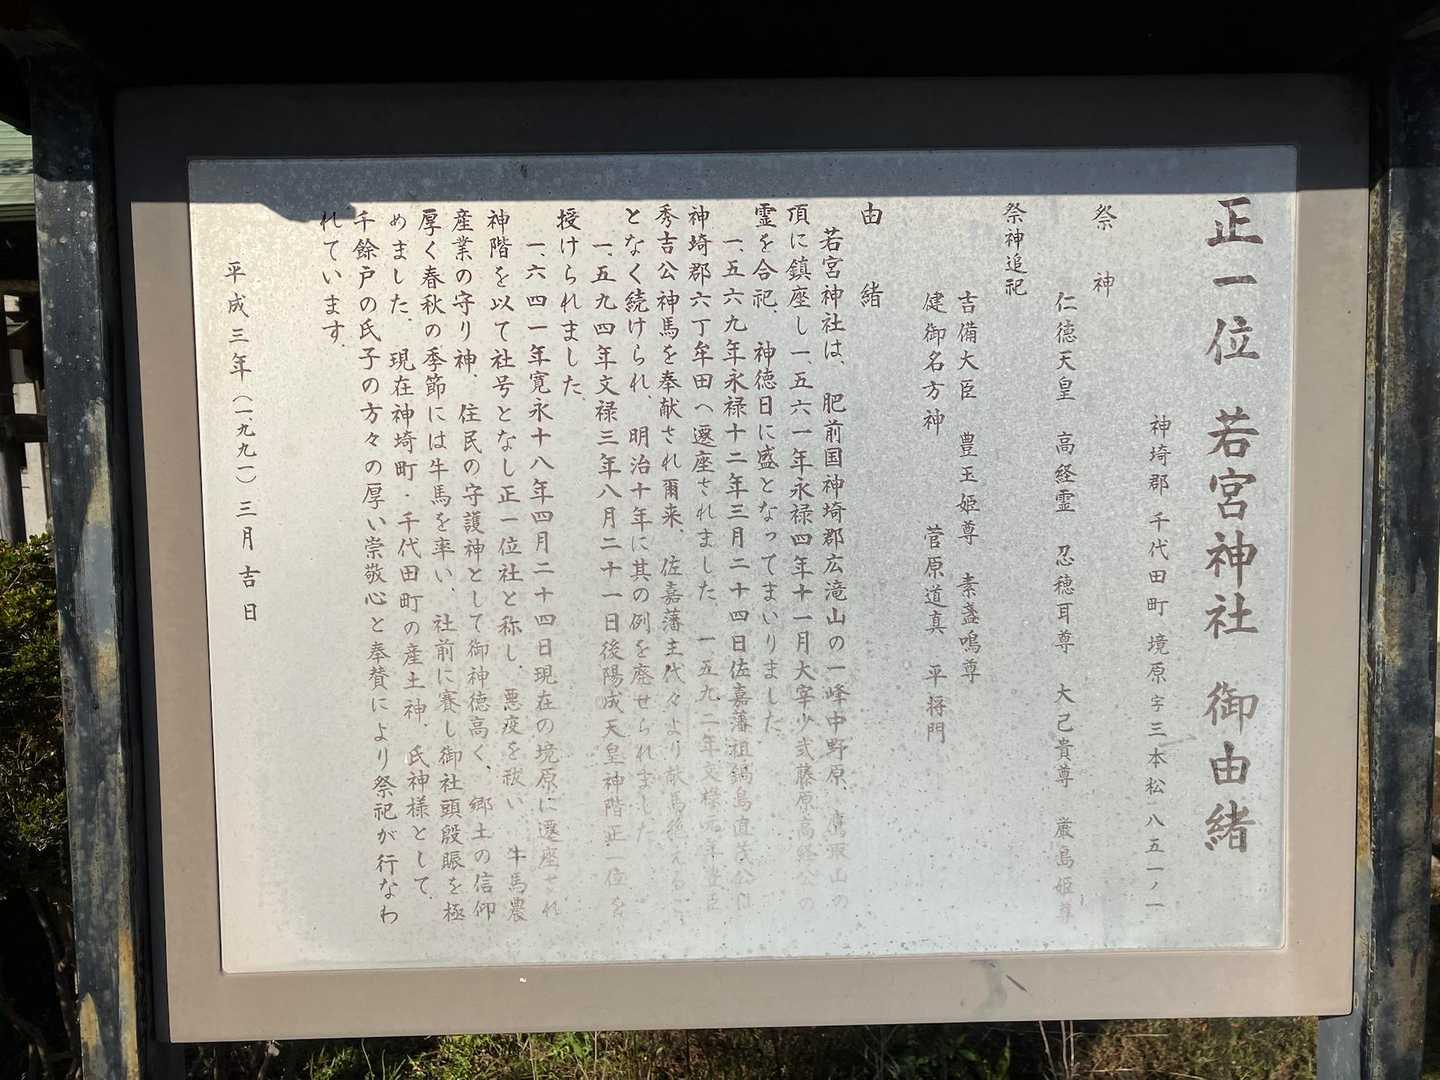 正一位 若宮神社 御由緒
神埼郡 千代田町 境原字三本松一八五一ノ一
祭神
仁徳天皇 高経霊 忍穂耳尊 大己貴尊 厳島姫尊
祭神追祀
吉備大臣 豊玉姫尊 素盞嗚尊
健御名方神 菅原道真 平将門
由緒
若宮神社は、肥前国神埼郡広滝山の一峰中野原、鷹取山の
頂に鎮座し一、五六一年永禄四年十一月大宰少弐藤原高経公の
霊を合祀、神徳日に盛となってまいりました。
一、五六九年永禄十二年三月二十四日佐嘉藩祖鍋島直茂公
神埼郡六丁牟田へ遷座されました。一五九二年文禄元年豊臣
秀吉公神馬を奉献され爾来、佐嘉藩主代々より献馬絶える
となく続けられ、明治十年に其の例を廃せられました
一、五九四年文禄三年八月二十一日後陽成天皇神階正一位を
授けられました。
一、六四一年寛永十八年四月二十四日現在の境原に遷座され
神階を以て社号となし正一位社と称し、悪疫を祓い、牛馬農
産業の守り神、住民の守護神として御神徳高く、郷土の信仰
厚く春秋の季節には牛馬を率い、社前に賽し御社頭殷賑を極
めました。現在神埼町・千代田町の産土神、氏神様として、
千餘戸の氏子の方々の厚い崇敬心と奉賛により祭祀が行なわ
れています。
平成三年（一、九九一）三月吉日